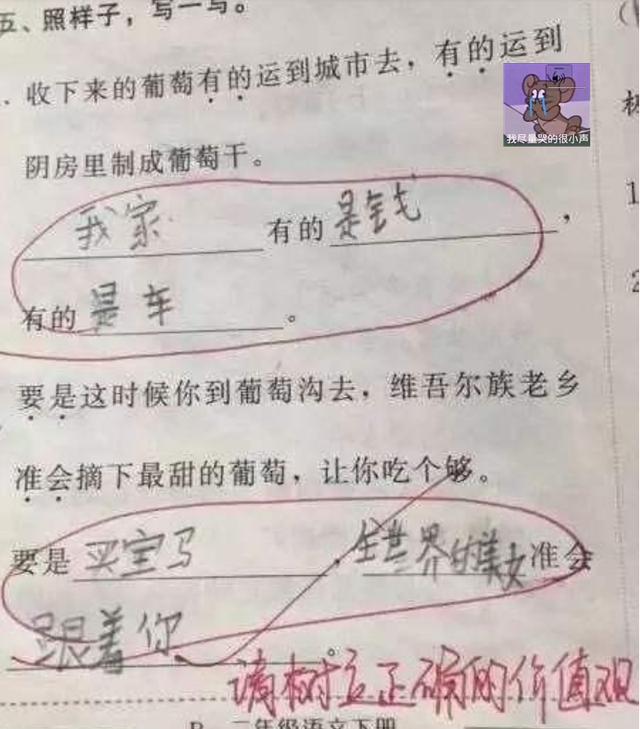 五、照样子，写一写。
收下来的葡萄有的运到城市去，有的运到
我尽量哭的很小声
阴房里制成葡萄干。
我家 有的 是钱，
有的 是车。
要是这时候你到葡萄沟去，维吾尔族老乡
准会摘下最甜的葡萄，让你吃个够。
要是 买宝马，全世界的美女准会
跟着你。
请树立正确的价值观
二年级语文下册